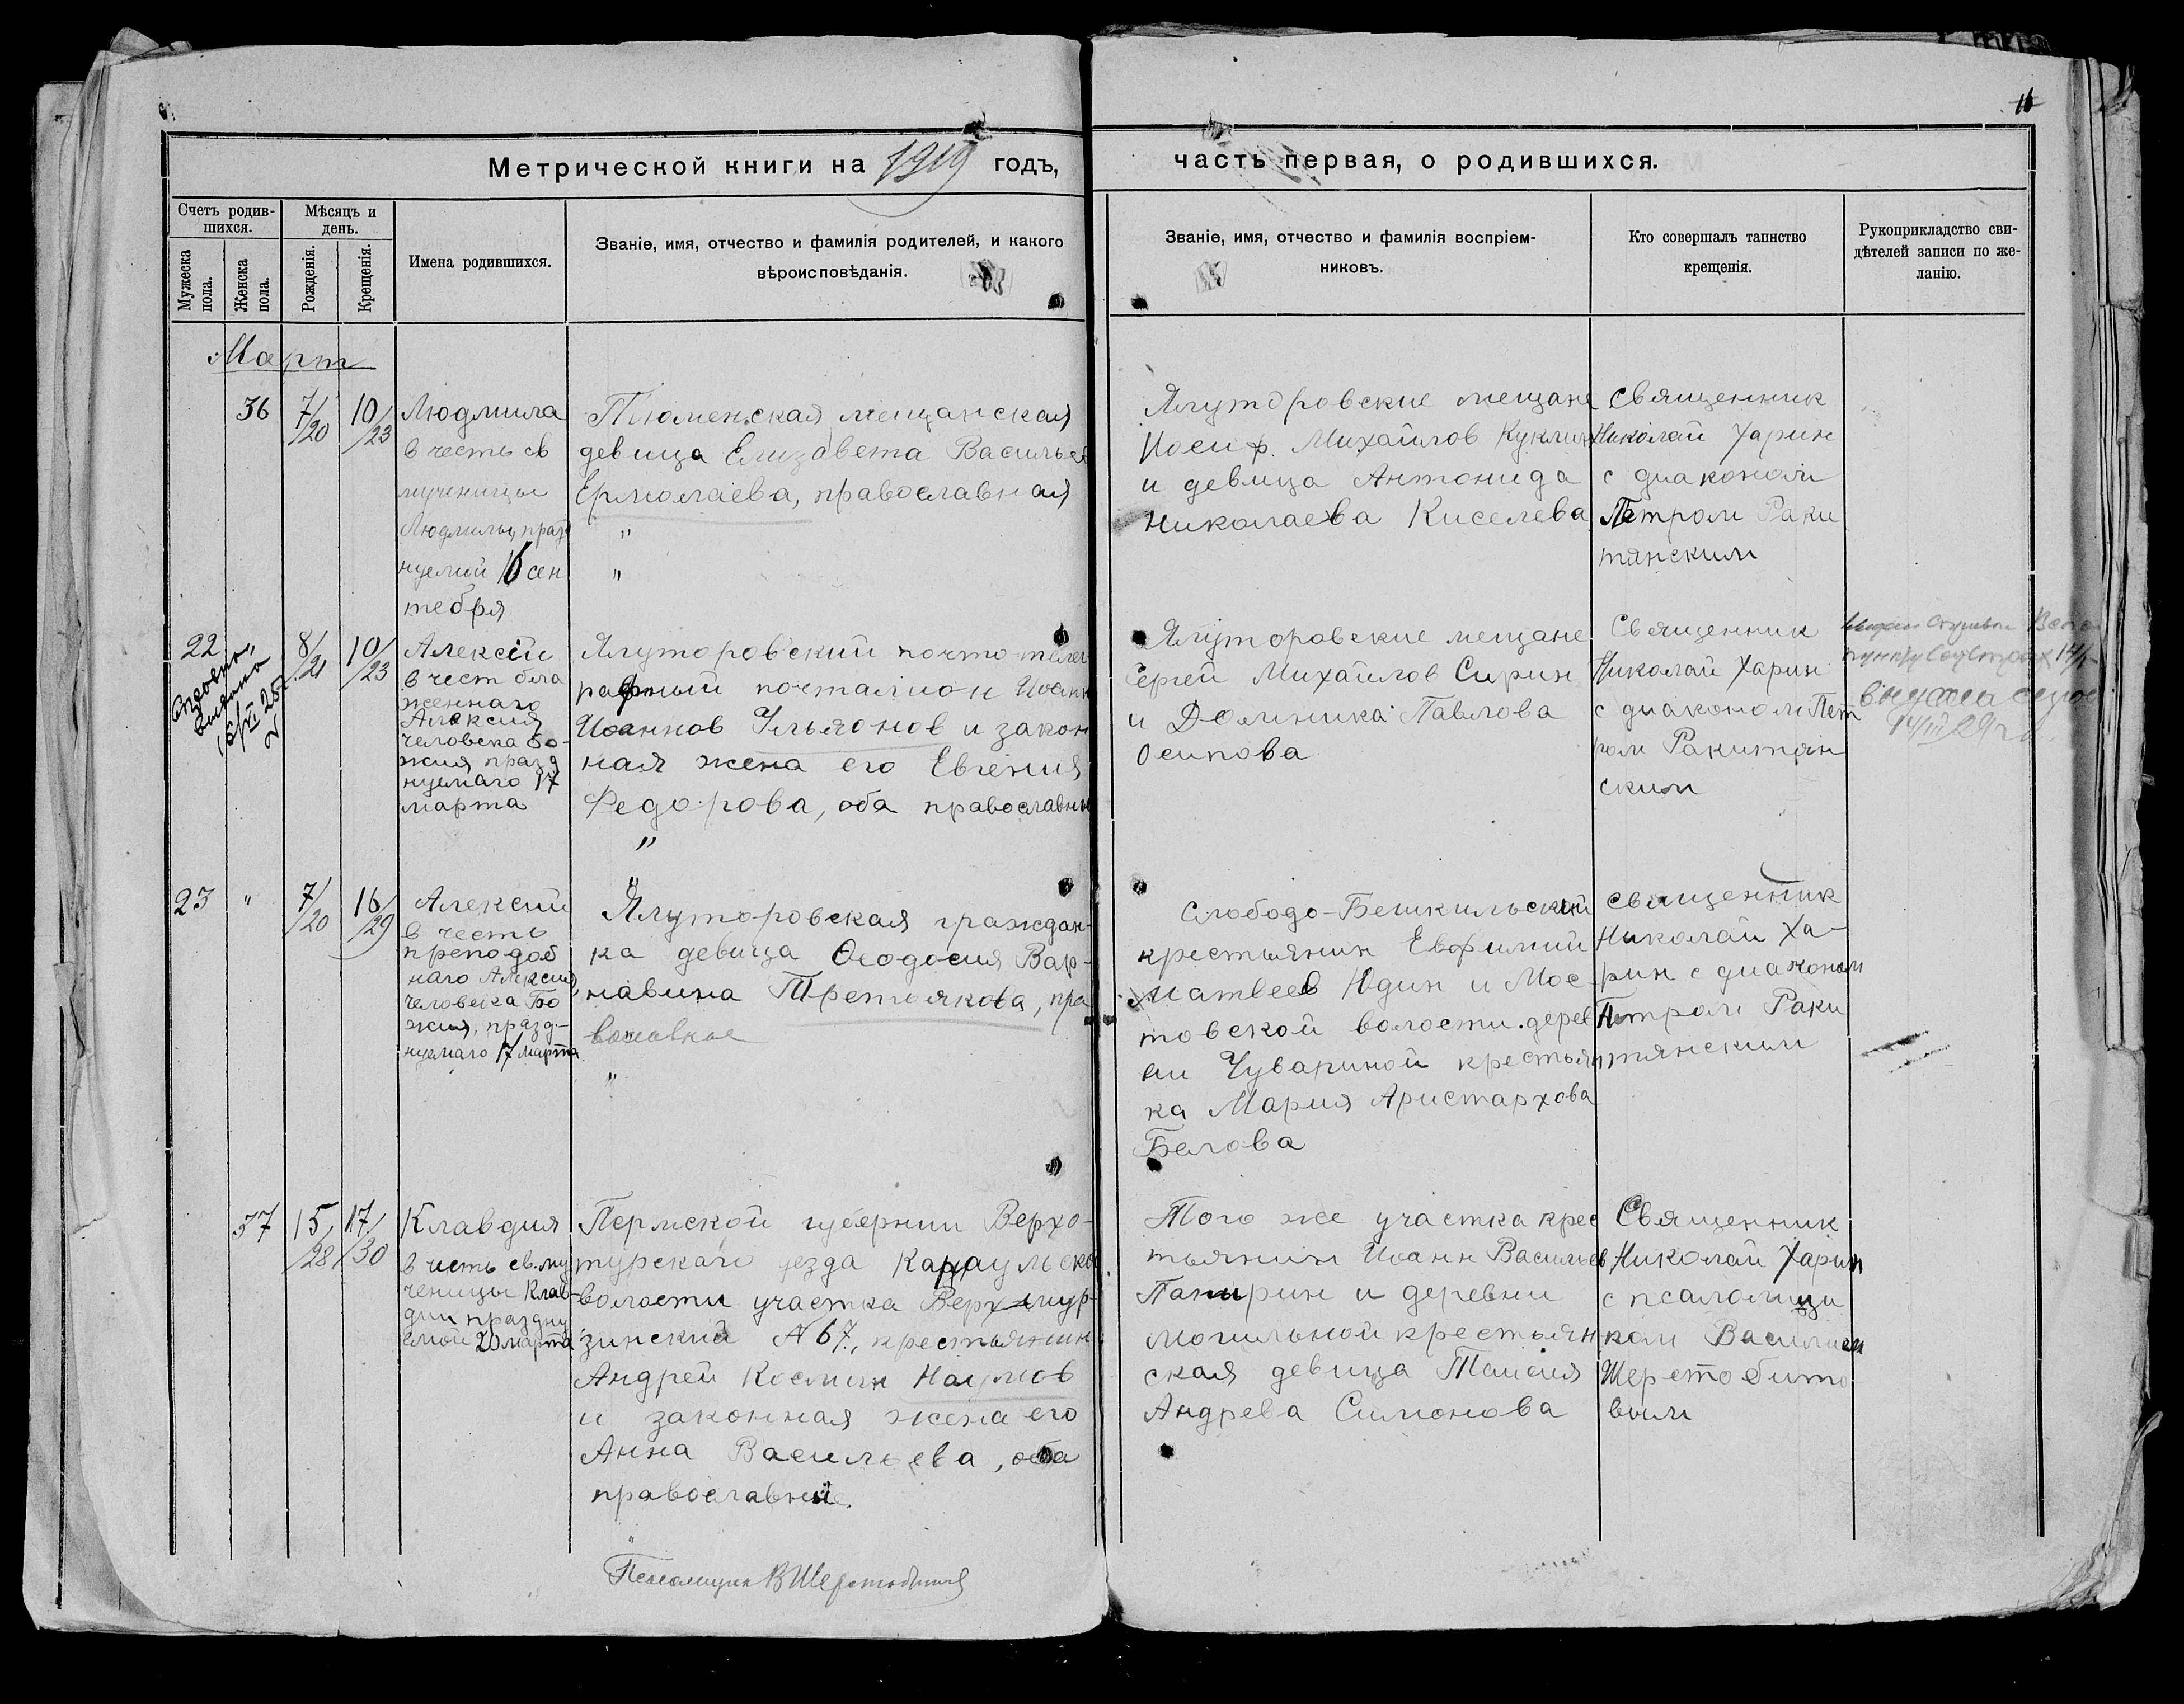 16
Метрической книги на 1919 годъ,
часть первая, о родившихся.
Счетъ родив-
шихся.
Мужеска
пола.
Женска
пола.
Мѣсяцъ и
день.
Рожденія.
Крещенія.
Имена родившихся.
Званіе, имя, отчество и фамилія родителей, и какого
вѣроисповѣданія.
Званіе, имя, отчество и фамилія воспріем-
никовъ.
Кто совершалъ таинство
крещенія.
Рукоприкладство сви-
дѣтелей записи по же-
ланію.
Март
36
7/20
10/23
Людмила
в честь св
мученицы
Людмилы, празд
нуемой 16 сен
тебря
Тюменская мещанская
девица Елизавета Васильев
Ермолаева, православная
"
"
Ялуторовские мещане
Иосиф. Михайлов Куклин
и девица Антонида
Николаева Киселева
священник
Николай Харин
с диаконом
Петром Раки
тянским
22
выдана
8/21
10/23
Алексий
в чест бла
женнаго
Алексия
человека Бо-
жия празд
нуемаго 17
марта
Ялуторовский почто-телег
рафный почталион Иоанн
Иоаннов Ульянов и закон
ная жена его Евгения
Федорова, оба православны
"
Ялуторовские мещане
Сергей Михайлов Сирин
и Домника Павлова
Осипова
Священник
Николай Харин
с диаконом Пет
ром Ракитян
ским
23
"
7/20
16/29
Алексий
в честь
преподоб
наго Алексия,
человека Бо
жия, празд-
нуемаго 17 марта
Ялуторовская граждан-
ка девица Феодосия Вар-
навина Третьякова, пра
вославная
"
Слободо-Бешкильский
крестьянин Евфимий
Матвеев Юдин и Мос-
товской волости. дерев
ни Чувариной крестьян
ка Мария Аристархова
Белова
священник
Николай Ха-
рин с диаконом
Петром Раки
тянским
37
15/28
17/30
Клавдия
в честь св. му
ченицы Клав-
дии праздну
емой 20 марта
Пермской губернии Верхо-
турскаго уезда Караульско
волости участка Верх-мур-
зинский № 67, крестьянин
Андрей Космин Наумов
и законная жена его
Анна Васильева, оба
православные.
"
Того же участка крес
тьянин Иоанн Васильев
Панырин и деревни
Могильной крестьян
ская девица Таисия
Андрева Симонова
Священник
Николай Харин
с псаломщи
ком Василием
Шеретобито
вым
Псаломщик В Шеретобитов